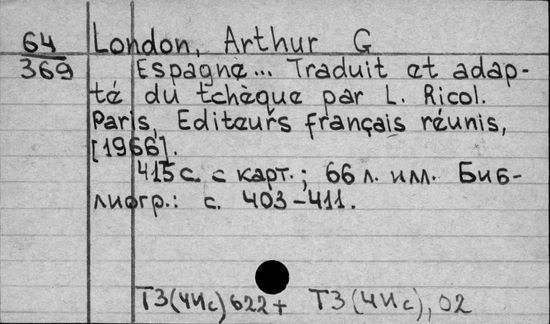 64 London, Arthur G
369 Espagne... Traduit et adap-
té du tchèque par L. Ricol.
Paris, Editeurs français réunis,
[1966].
415 с. с карт.; 66 л. илл. Биб-
лиогр.: с. 403-411.
Т3(4Ис)622+ Т3(4Ис),02